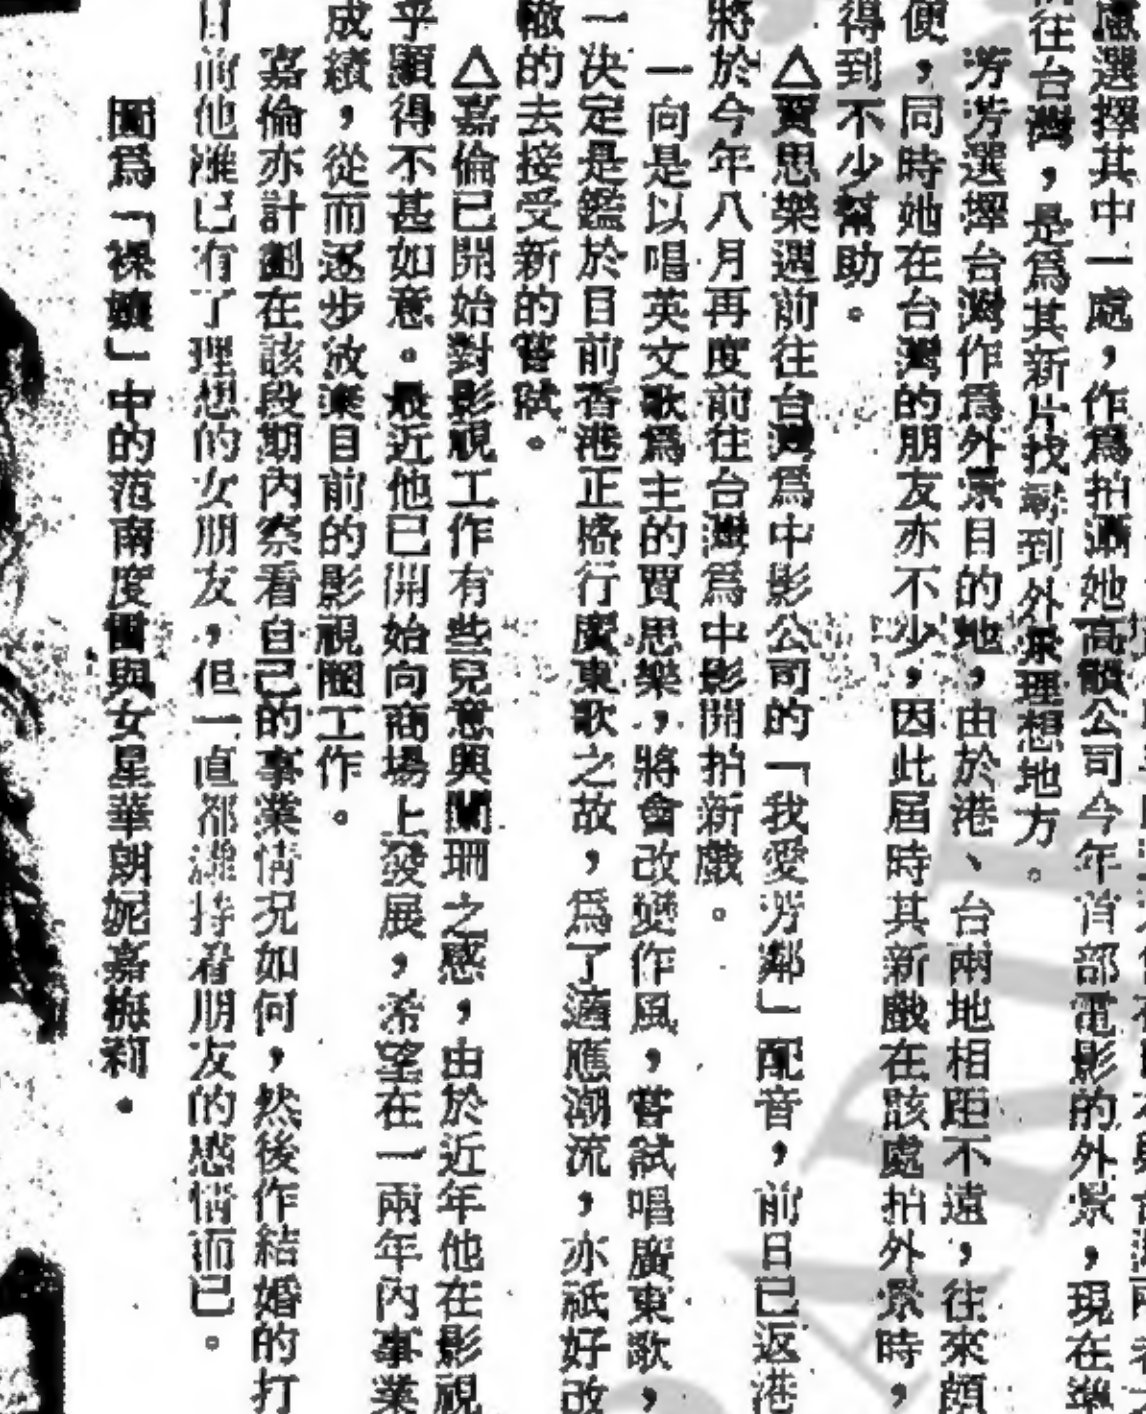 慮選擇其中一處，作爲拍攝她高韻公司今年首部電影的外景，現在準
往台灣，是爲其新片找尋到外景理想地方。
芳芳選擇台灣作爲外景目的地，由於港、台兩地相距不遠，往來頗
便，同時她在台灣的朋友亦不少，因此屆時其新戲在該處拍外景時，
得到不少幫助。
△賈思樂週前往台灣爲中影公司的「我愛芳鄰」配音，前日已返港
將於今年八月再度前往台灣爲中影開拍新戲。
一向是以唱英文歌爲主的賈思樂，將會改變作風，嘗試唱廣東歌，
一決定是鑑於目前香港正盛行廣東歌之故，爲了適應潮流，亦祇好改
轍的去接受新的嘗試。
△嘉倫已開始對影視工作有些兒意興闌珊之感，由於近年他在影視
乎顯得不甚如意。最近他已開始向商場上發展，希望在一兩年內事業
成績，從而逐步放棄目前的影視圈工作。
嘉倫亦計劃在該段期內察看自己的事業情况如何，然後作結婚的打
目前他雖已有了理想的女朋友，但一直都維持着朋友的感情而已。
圖爲「裸孃」中的范南度雷與女星華朗妮嘉梅莉．